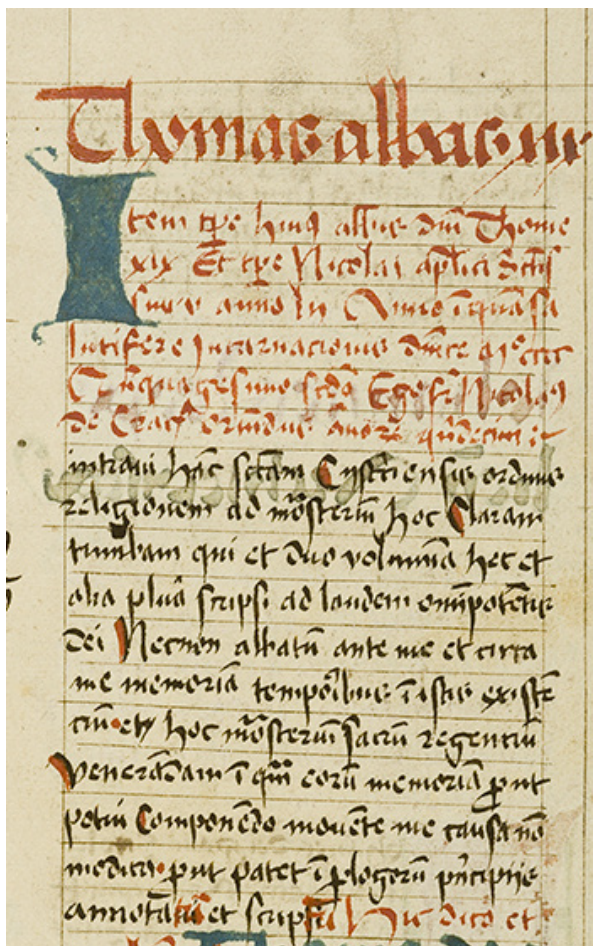 Thomas abbas
Item tpe huiꝰ abbis dni Thome
xix Et tpe Nicolai aplici
sui v anno Anno i quasa
lutifere Incarnacionis dnice
Cinquagesimo scdo Ego fr Nicolaꝰ
de oriundus annorꝝ quindecim
intravi hac sctam Cistciensis ordinis
religionem ad mosteriu hoc Claram
tumbam qui et duo volumina hec et
alia plura scripsi ad laudem omipotetis
dei Necnon abbatu ante me et circa
me memoria temporibus i istis existe
ciu et hoc mosteriu sacru regentiu
veneradam i qua eoru memoria ꝓut
potui Componedo movete me causa no
modica ꝓut patet i ꝓlogorū pncipiis
annotata et scripta Hic dico et